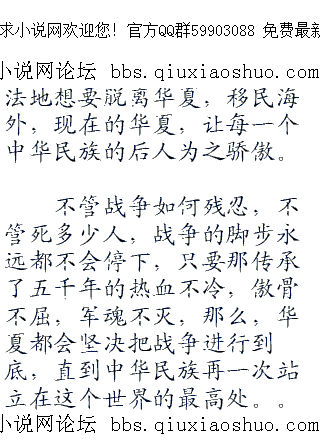 求小说网欢迎您! 官方QQ群59903088 免费最新
小说网论坛 bbs.qiuxiaoshuo.com
法地想要脱离华夏，移民海
外，现在的华夏，让每一个
中华民族的后人为之骄傲。
不管战争如何残忍，不
管死多少人，战争的脚步永
远都不会停下，只要那传承
了五千年的热血不冷，傲骨
不屈，军魂不灭，那么，华
夏都会坚决把战争进行到
底，直到中华民族再一次站
立在这个世界的最高处。。
小说网论坛 bbs.qiuxiaoshuo.com